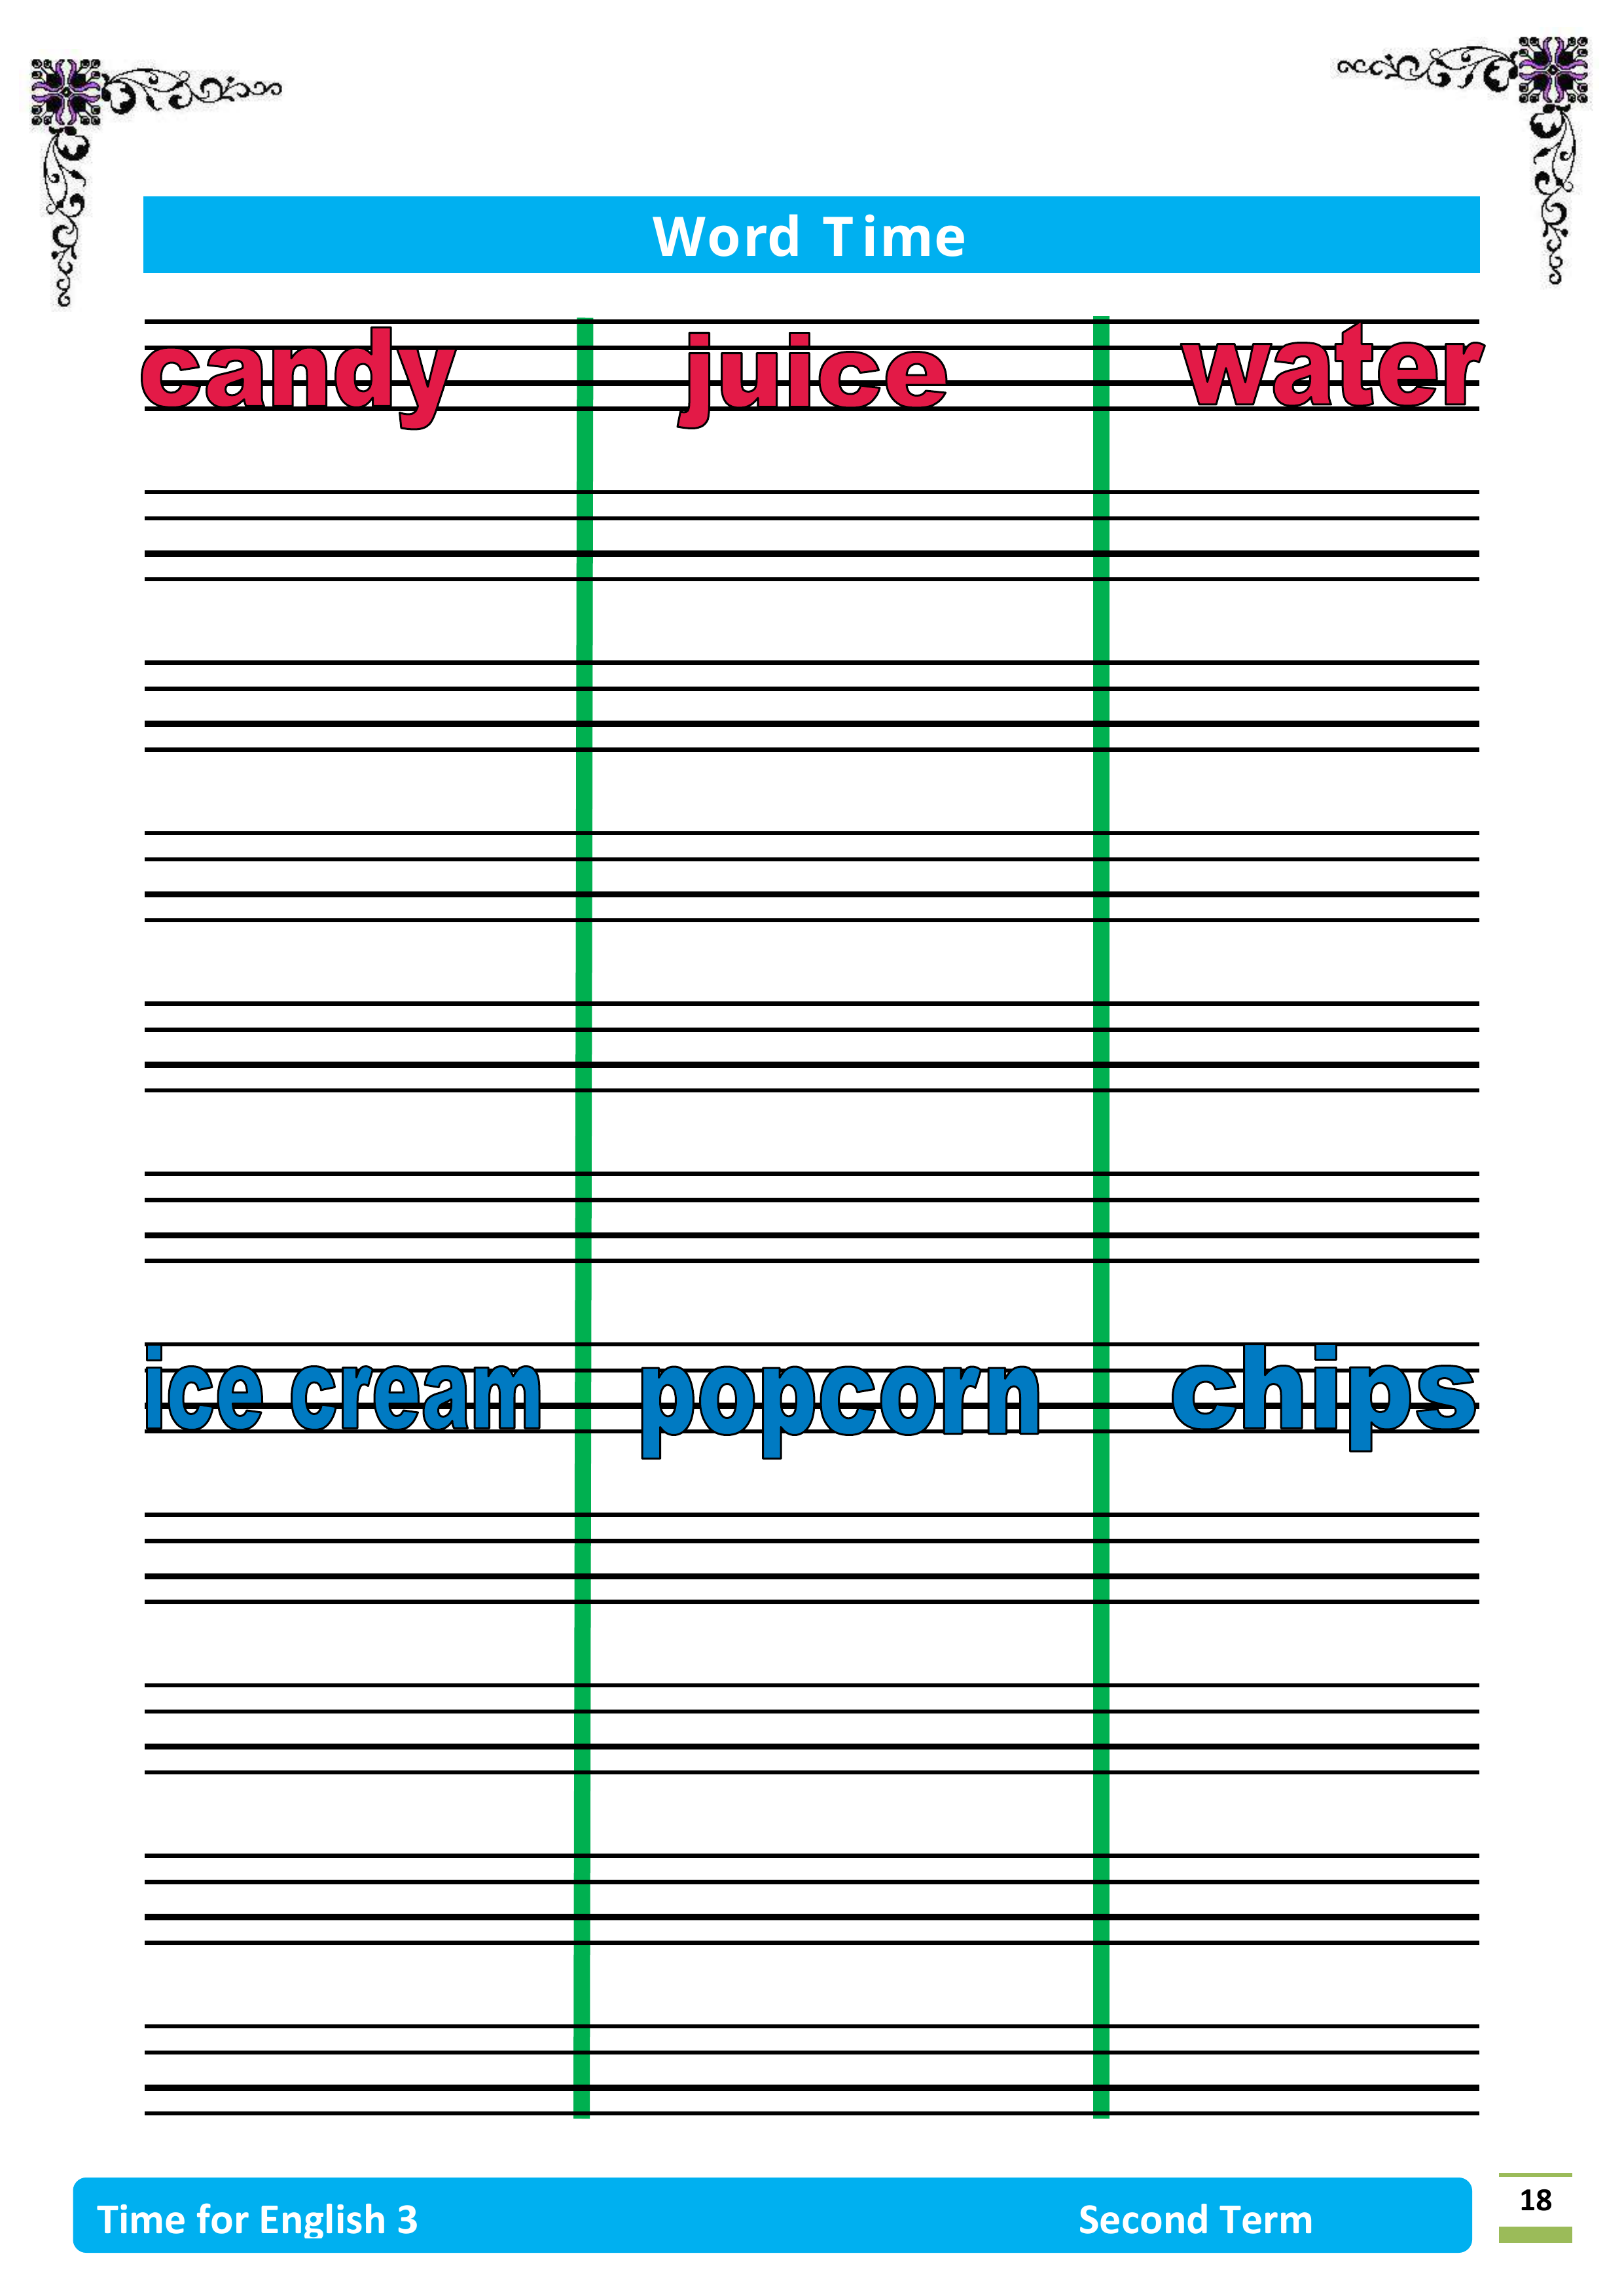 Word Time
candy juice water
ice cream popcorn chips
Time for English 3 Second Term 18